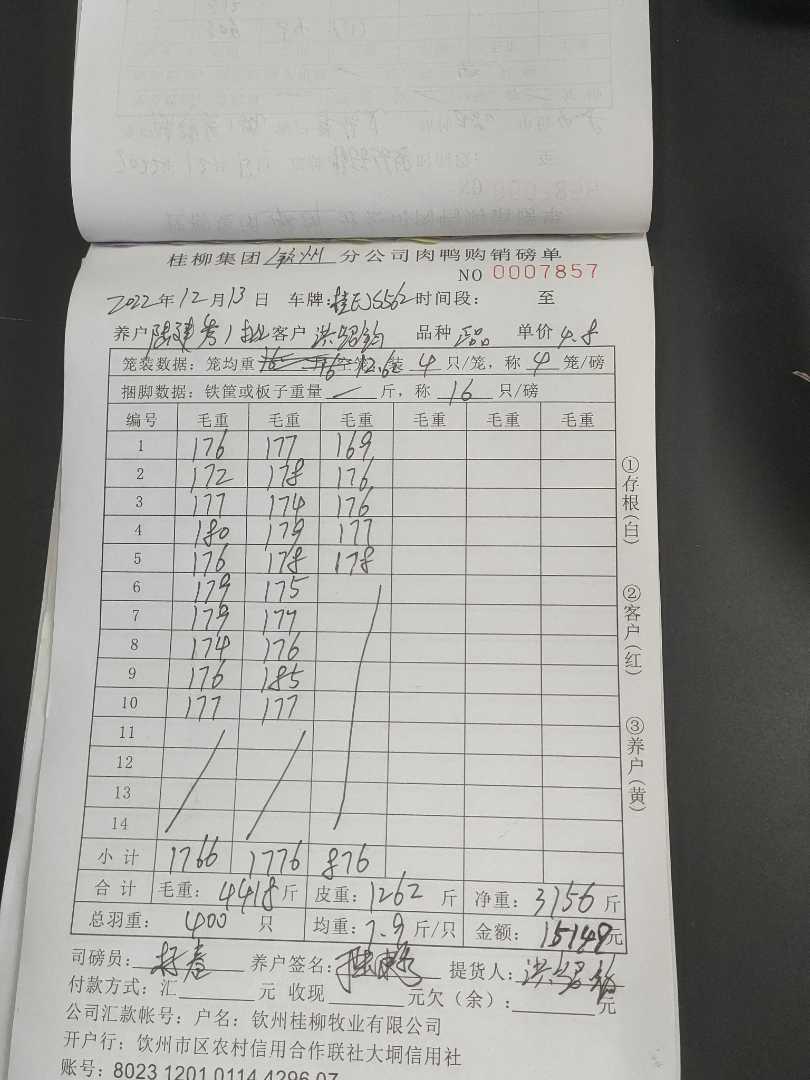 桂柳集团 钦州 分公司肉鸭购销磅单
NO 0007857
2022年12月13日 车牌:桂EJS562 时间段: 至
养户 客户 洪绍钧 品种 正品 单价 4.8
笼装数据: 笼均重 16 空笼 12.6 装 4 只/笼, 称 4 笼/磅
捆脚数据: 铁筐或板子重量 — 斤, 称 16 只/磅
编号 毛重 毛重 毛重 毛重 毛重 毛重
1 176 177 169
2 172 178 176
3 177 174 176
4 180 179 177
5 176 178 178
6 179 175
7 179 177
8 174 176
9 176 185
10 177 177
11
12
13
14
小计 1766 1776 876
合计 毛重: 4418斤 皮重: 1262 斤 净重: 3156 斤
总羽重: 400 只 均重: 7.9 斤/只 金额: 15149元
司磅员: 养户签名: 提货人: 洪绍钧
付款方式: 汇 元 收现 元欠(余): 元
公司汇款帐号: 户名: 钦州桂柳牧业有限公司
开户行: 钦州市区农村信用合作联社大垌信用社
账号: 8023 1201 0114 4296 07
①存根(白)
②客户(红)
③养户(黄)